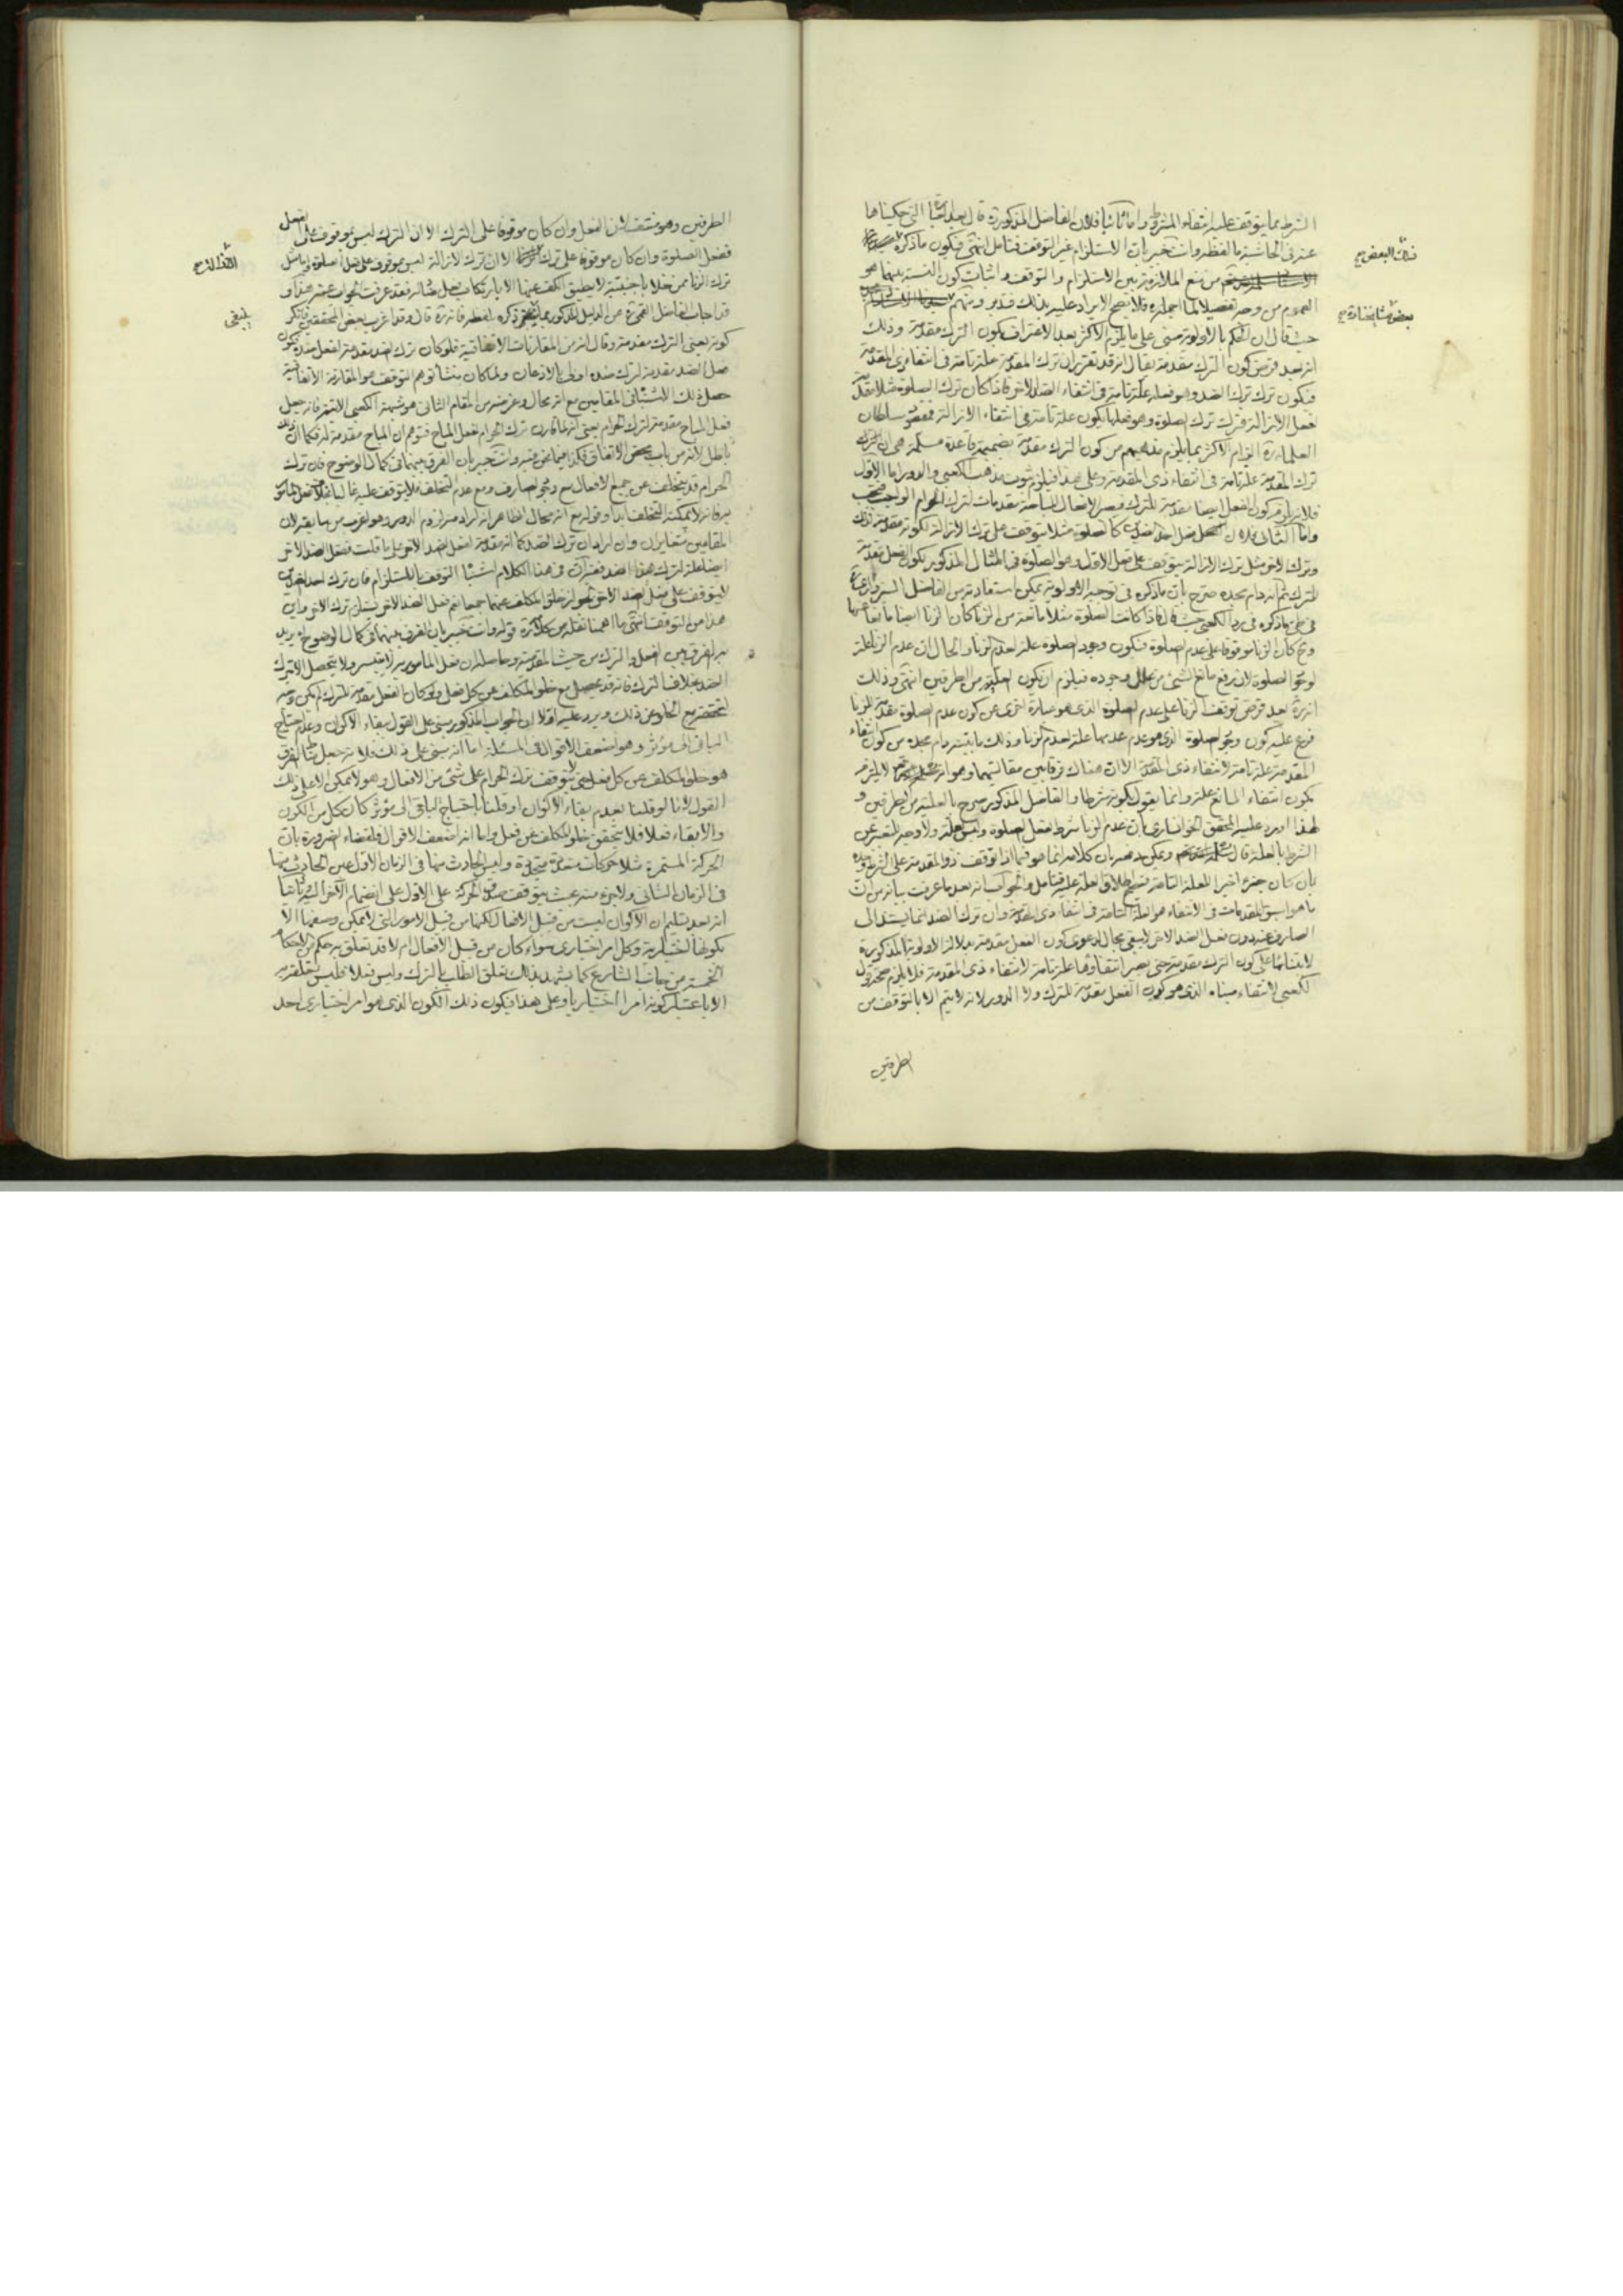 الشرط مما يتوقف عليه انتفاء المشروط واما ثانيا فلان الفاضل المذكور ره قال بعد العبارة التي حكيناها
عنه في الحاشية ما لفظه وانت خبير بان الاستلزام غير التوقف فتامل انتهى فيكون ما ذكره
من منع الملازمة بين الاستلزام والتوقف واثبات كون النسبة بينهما هو
العموم من وجه تفصيلا لما اجمله فلا يتضح الايراد عليه بذلك فتدبر ومنهم
حيث قال ان الحكم بالاولوية مبني على ما يلزم الاكثر بعد الاعتراف بكون الترك مقدمة وذلك
انه بعد فرض كون الترك مقدمة يقال انه قد تقرر ان ترك المقدمة علة تامة في انتفاء ذي المقدمة
فيكون ترك ترك الضد وهو فعله علة تامة في انتفاء الضد الاخر فاذا كان ترك الصلوة مثلا مقدمة
لفعل الازالة فترك ترك الصلوة وهو فعلها يكون علة تامة في انتفاء الازالة فمقصود سلطان
العلماء ره الزام الاكثر بما يلزم مذهبهم من كون الترك مقدمة بضميمة قاعدة مسلمة هي ان
ترك المقدمة علة تامة في انتفاء ذي المقدمة وعلى هذا فيلزم ثبوت مذهب الكعبي والدور اما الاول
فلانه لو كون الفعل ايضا مقدمة للترك فيصير الافعال المباحة مقدمات لترك الحرام الواجب فتجب
واما الثاني فلان فعل احد الضدين كالصلوة مثلا يتوقف على ترك الازالة لكونه مقدمة وذلك
وترك الاخر مثل ترك الازالة يتوقف على فعل الاول وهو الصلوة في المثال المذكور لكون الفعل مقدمة
للترك ثم انه دام مجده صرح بان ما ذكره في توجيه الاولوية يمكن استفادته من الفاضل السبزواري
في طي ما ذكره في رد الكعبي حيث قال فاذا كانت الصلوة مثلا مانعة من الزنا كان الزنا ايضا مانعا عنها
وح كان الزنا موقوفا على عدم الصلوة فيكون وجود الصلوة علة لعدم الزنا والحال ان عدم الزنا علة
لوجود الصلوة لان رفع مانع الشيء من علل وجوده فيلزم ان يكون العلية من الطرفين انتهى وذلك
انه ره بعد فرض توقف الزنا على عدم الصلوة الذي هو عبارة اخرى عن كون عدم الصلوة مقدمة للزنا
فرع عليه كون وجود الصلوة الذي هو عدم عدمها علة لعدم الزنا وذلك ما بينه دام مجده من كون انتفاء
المقدمة علة تامة لانتفاء ذي المقدمة الا ان هناك فرقا بين مقالتيهما وهو انه لا يلتزم
بكون انتفاء المانع علة وانما يقول بكونه شرطا والفاضل المذكور صرح بالعلية من الطرفين و
لهذا اورد عليه المحقق الخوانساري بان عدم الزنا شرط لفعل الصلوة وليس علة ولا وجه للتعبير عن
الشرط بالعلة قال ويمكن دفعه بان كلامه انما هو فيما اذا توقف ذو المقدمة على الشرط وحده
بان كان جزء اخيرا للعلة التامة فيصح اطلاق العلة عليه فتامل والجواب انه بعد ما عرفت بيانه من ان
ما هو اسبق المقدمات في الانتفاء هو العلة التامة في انتفاء ذي المقدمة وان ترك الضد انما يستند الى
الصارف عنه دون فعل الضد الاخر لا يبقى مجال لدعوى كون الفعل مقدمة بدلالة الاولوية المذكورة
لابتنائها على كون الترك مقدمة حتى يصير انتفاؤها علة تامة لانتفاء ذي المقدمة فلا يلزم صحة قول
الكعبي لانتفاء مبناه الذي هو كون الفعل مقدمة للترك ولا الدور لانه لا يتم الا بالتوقف من
الطرفين
الطرفين وهو منتف لان الفعل وان كان موقوفا على الترك الا ان الترك ليس بموقوف على الفعل
ففعل الصلوة وان كان موقوفا على ترك الا ان ترك الازالة ليس بموقوف على فعل الصلوة
ترك الزنا ممن خلا باجنبية لا يطيق الكف عنها الا بارتكاب فقد عرفت الجواب عنه هذا و
قد اجاب الفاضل القمي ره عن الدليل المذكور بما ذكره لفظه فانه ره قال وقد اغرب بعض المحققين فانكر
كونه يعني الترك مقدمة وقال انه من المقارنات الاتفاقية فلو كان ترك الضد مقدمة لفعل ضده فكون
فعل الضد مقدمة لترك ضده اولى بالاذعان ولما كان منشا توهم التوقف هو المقارنة الاتفاقية
حصل ذلك الاشتباه في المقامين مع انه محال وغرضه من المقام الثاني هو شبهة الكعبي الاتية فانه جعل
فعل المباح مقدمة لترك الحرام يعني انه لما قارن ترك الحرام لفعل المباح فتوهم ان المباح مقدمة له فكما ان ذلك
باطل لانه من باب محض الاتفاق فكذا فيما نحن فيه وانت خبير بان الفرق بينهما في كمال الوضوح فان ترك
الحرام قد يتخلف عن جميع الافعال مع وجود الصارف ومع عدم التخلف فلا يتوقف عليه غالبا بخلاف فعل المامور
به فانه لا يمكنه التخلف ابدا وقوله مع انه محال الظاهر انه اراد منه لزوم الدور وهو اغرب من سابقه لان
المقامين متغايران وان اراد ان ترك الضد كما انه مقدمة لفعل الضد الاخر على ما قلت ففعل الضد الاخر
ايضا علة لترك هذا الضد ففيه ان في هذا الكلام اشتباه التوقف بالاستلزام فان ترك احد الضدين
لا يتوقف على فعل الضد الاخر لجواز خلو المكلف عنهما جميعا نعم فعل الضد الاخر يستلزم ترك الاخر واين
هذا من التوقف انتهى ما اهمنا نقله من كلامه ره قوله وانت خبير بان الفرق بينهما في كمال الوضوح اه يريد
به الفرق بين الفعل والترك من حيث المقدمية وحاصله ان فعل المامور به لا يتيسر ولا يتحصل الا بترك
الضد بخلاف الترك فانه قد يحصل مع خلو المكلف عن كل فعل ولو كان الفعل مقدمة للترك لم يكن وجه
لتحققه مع الخلو عن ذلك ويرد عليه اولا ان الجواب المذكور مبني على القول ببقاء الاكوان وعدم احتياج
الباقي الى مؤثر وهو اضعف الاقوال في المسئلة اما انه مبني على ذلك فلانه جعل مناط الفرق
هو خلو المكلف عن كل فعل حتى لا يتوقف ترك الحرام على شيء من الافعال وهو لا يمكن الا على ذلك
القول لانا لو قلنا بعدم بقاء الاكوان او قلنا باحتياج الباقي الى مؤثر كان كل من الكون
والابقاء فعلا فلا يتحقق خلو المكلف عن فعل واما انه اضعف الاقوال فلقضاء الضرورة بان
الحركة المستمرة مثلا حركات متعددة متجددة وليس الحادث منها في الزمان الاول عين الحادث منها
في الزمان الثاني ولا جزء منه بحيث يتوقف صدق الحركة على الاول على انضمام الاخر اليه وثانيا
انه بعد تسليم ان الاكوان ليست من قبيل الافعال لكنها من قبيل الامور التي لا يمكن وصفها الا
بكونها اختيارية وكل امر اختياري سواء كان من قبيل الافعال ام لا قد تعلق به حكم من الاحكام
الخمسة من جانب الشارع كما يشهد بذلك تعلق الطلب بالترك وليس فعلا فليس تعلقه به
الا باعتبار كونه امرا اختياريا وعلى هذا فيكون ذلك الكون الذي هو امر اختياري احد